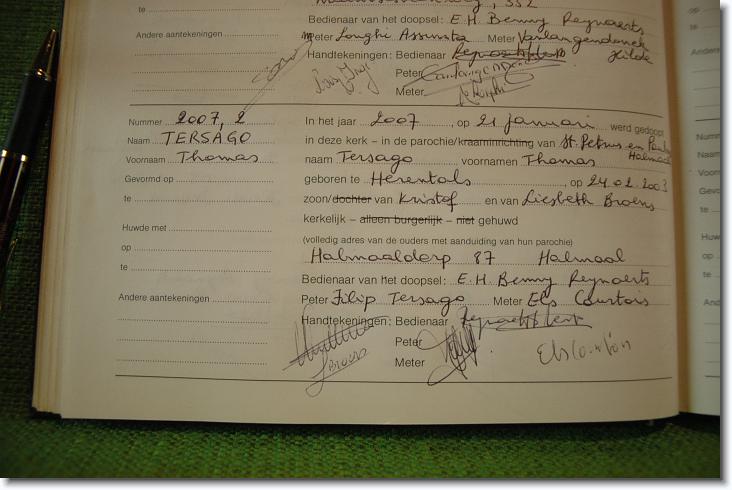 , 332
te
Bedienaar van het doopsel: E.H. Benny Reynaerts
Andere aantekeningen
Peter Longhi Assunta Meter Vanlangendonck
Handtekeningen: Bedienaar Hilde
Peter
Meter
Nummer 2007, 2
Naam TERSAGO
Voornaam Thomas
Gevormd op
te
Huwde met
op
te
Andere aantekeningen
In het jaar 2007, op 21 Januari werd gedoopt
in deze kerk – in de parochie/kraaminrichting van St. Petrus en Paulus
Halmaal
naam Tersago voornamen Thomas
geboren te Herentals, op 24.02.2003
zoon/dochter van Kristof en van Liesbeth Broens
kerkelijk – alleen burgerlijk – niet gehuwd
(volledig adres van de ouders met aanduiding van hun parochie)
Halmaaldorp 87 Halmaal
Bedienaar van het doopsel: E.H. Benny Reynaerts
Peter Filip Tersago Meter Els Courtois
Handtekeningen: Bedienaar
Peter
Broens Meter Els Courtois
Andere
Numm
Naam
Voorn
Gevo
te
Huw
op
te
And